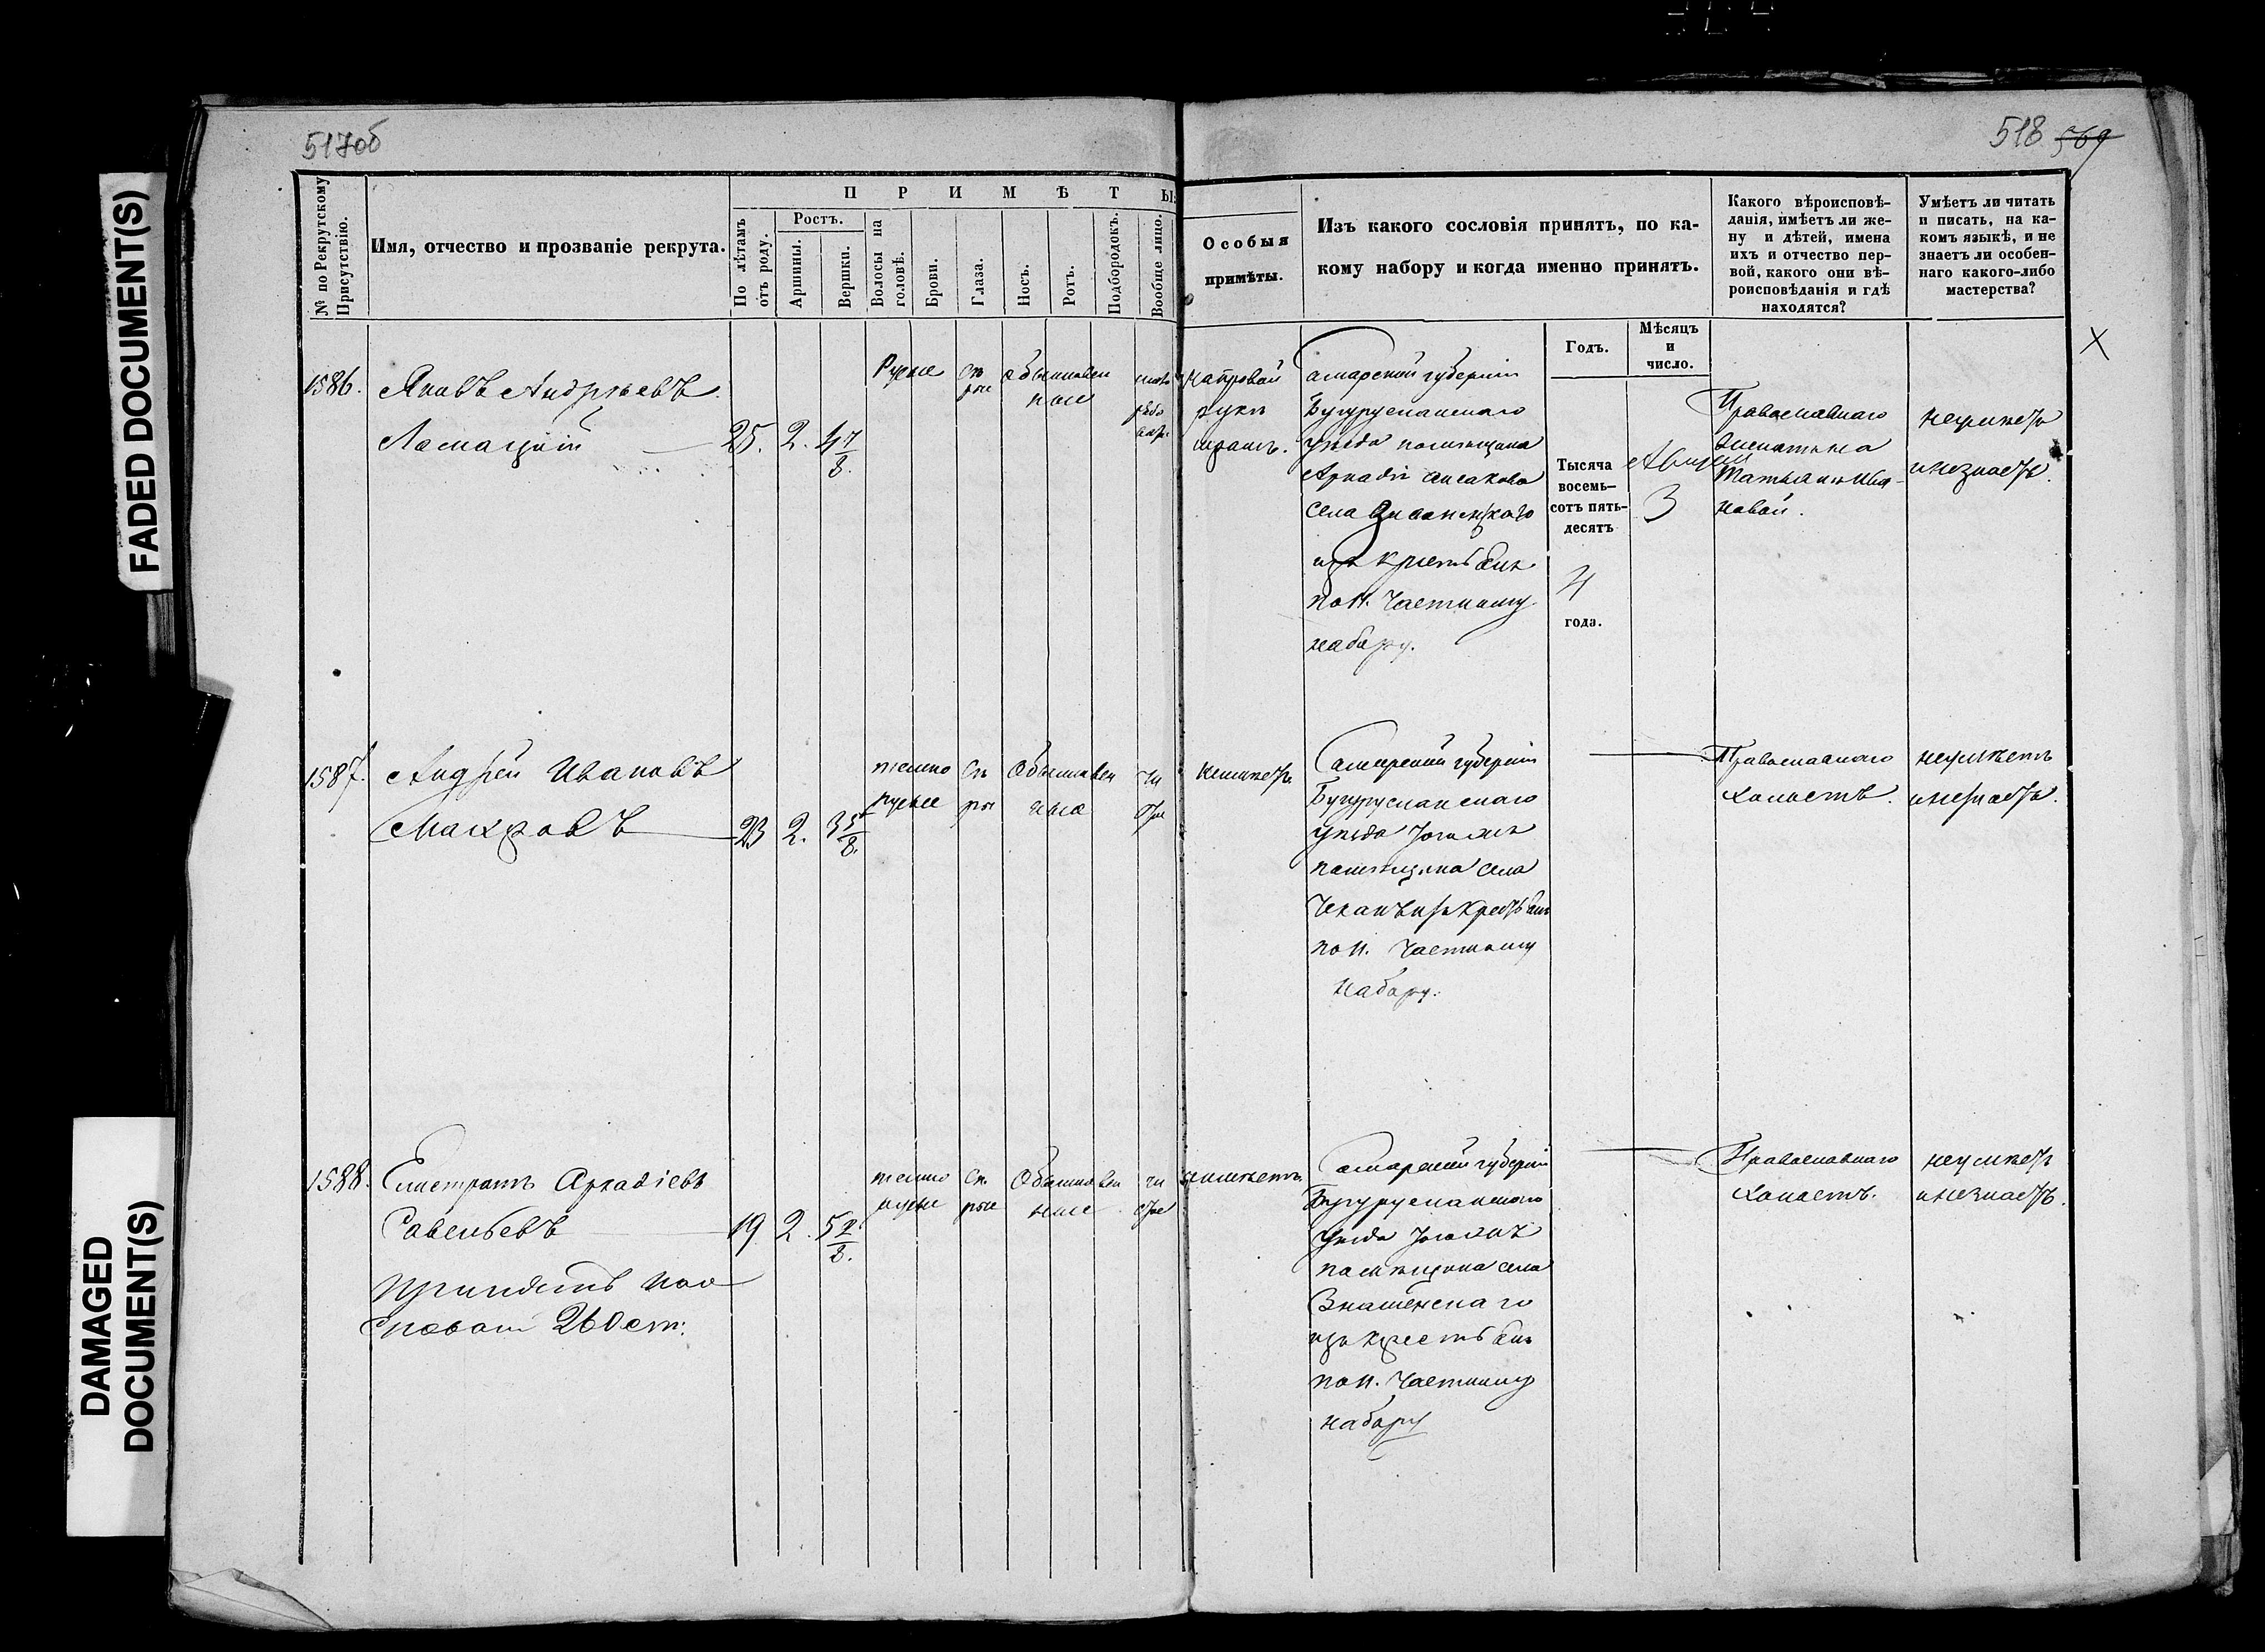 FADED DOCUMENT(S)
DAMAGED
DOCUMENT(S)
517об
518 569
№ по Рекрутскому
Присутствію.
Имя, отчество и прозваніе рекрута.
ПРИМѢТЫ:
По лѣтамъ
отъ роду.
Ростъ.
Аршины.
Вершки.
Волосы на
головѣ.
Брови.
Глаза.
Носъ.
Ротъ.
Подбородокъ.
Вообще лицо.
Особыя
примѣты.
Изъ какого сословія принятъ, по ка-
кому набору и когда именно принятъ.
Годъ.
Мѣсяцъ
и
число.
Какого вѣроисповѣ-
данія, имѣетъ ли же-
ну и дѣтей, имена
ихъ и отчество пер-
вой, какого они вѣ-
роисповѣданія и гдѣ
находятся?
Умѣетъ ли читать
и писать, на ка-
комъ языкѣ, и не
знаетъ ли особен-
наго какого-либо
мастерства?
1586.
Яковъ Андреевъ
25. 2. 4 7/8.
Русые
Сѣ
рые
обыкновен
ные
на правой
руки
шрамъ.
Самарской губерніи
Бугурусланскаго
уѣзда помѣщика
Аркадія Аксакова
села
изъ крестьянъ
по 11. Частному
набору.
Тысяча
восемь-
сотъ пять-
десятъ
4
года.
3
Православнаго
Татьяна Ива-
новой.
неумѣетъ
и незнаетъ.
X
1587.
Андрей Ивановъ
Макаровъ
23 2. 3 5/8.
темно
русые
Сѣ
рые
Обыкновен
ные
чи
стое
неимѣетъ
Самарской губерніи
Бугурусланскаго
уѣзда тогожъ
помѣщика села
изъ Крестьянъ
по 11. Частному
набору.
Православнаго
Холостъ.
неумѣетъ
и незнаетъ.
1588.
Елистратъ Аркадіевъ
Савельевъ
19 2. 5 2/8.
260 ст:
темно
русые
Сѣ
рые
Обыкновен
ные
чи
стое
неимѣетъ
Самарской губерніи
Бугурусланскаго
уѣзда тогожъ
помѣщика села
Знаменскаго
изъ крестьянъ
по 11. Частному
набору
Православнаго
Холостъ.
неумѣетъ
и незнаетъ.